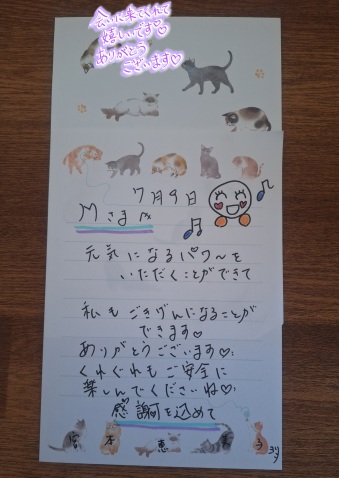 会いに来てくれて
嬉しいです♡
ありがとう
ございます♡
7月9日
Mさま
元気になるパワーを
いただくことができて
私もごきげんになることが
できます♡
ありがとうございます♡
くれぐれもご安全に
楽しんでくださいね♡
感謝を込めて
宮本恵
より